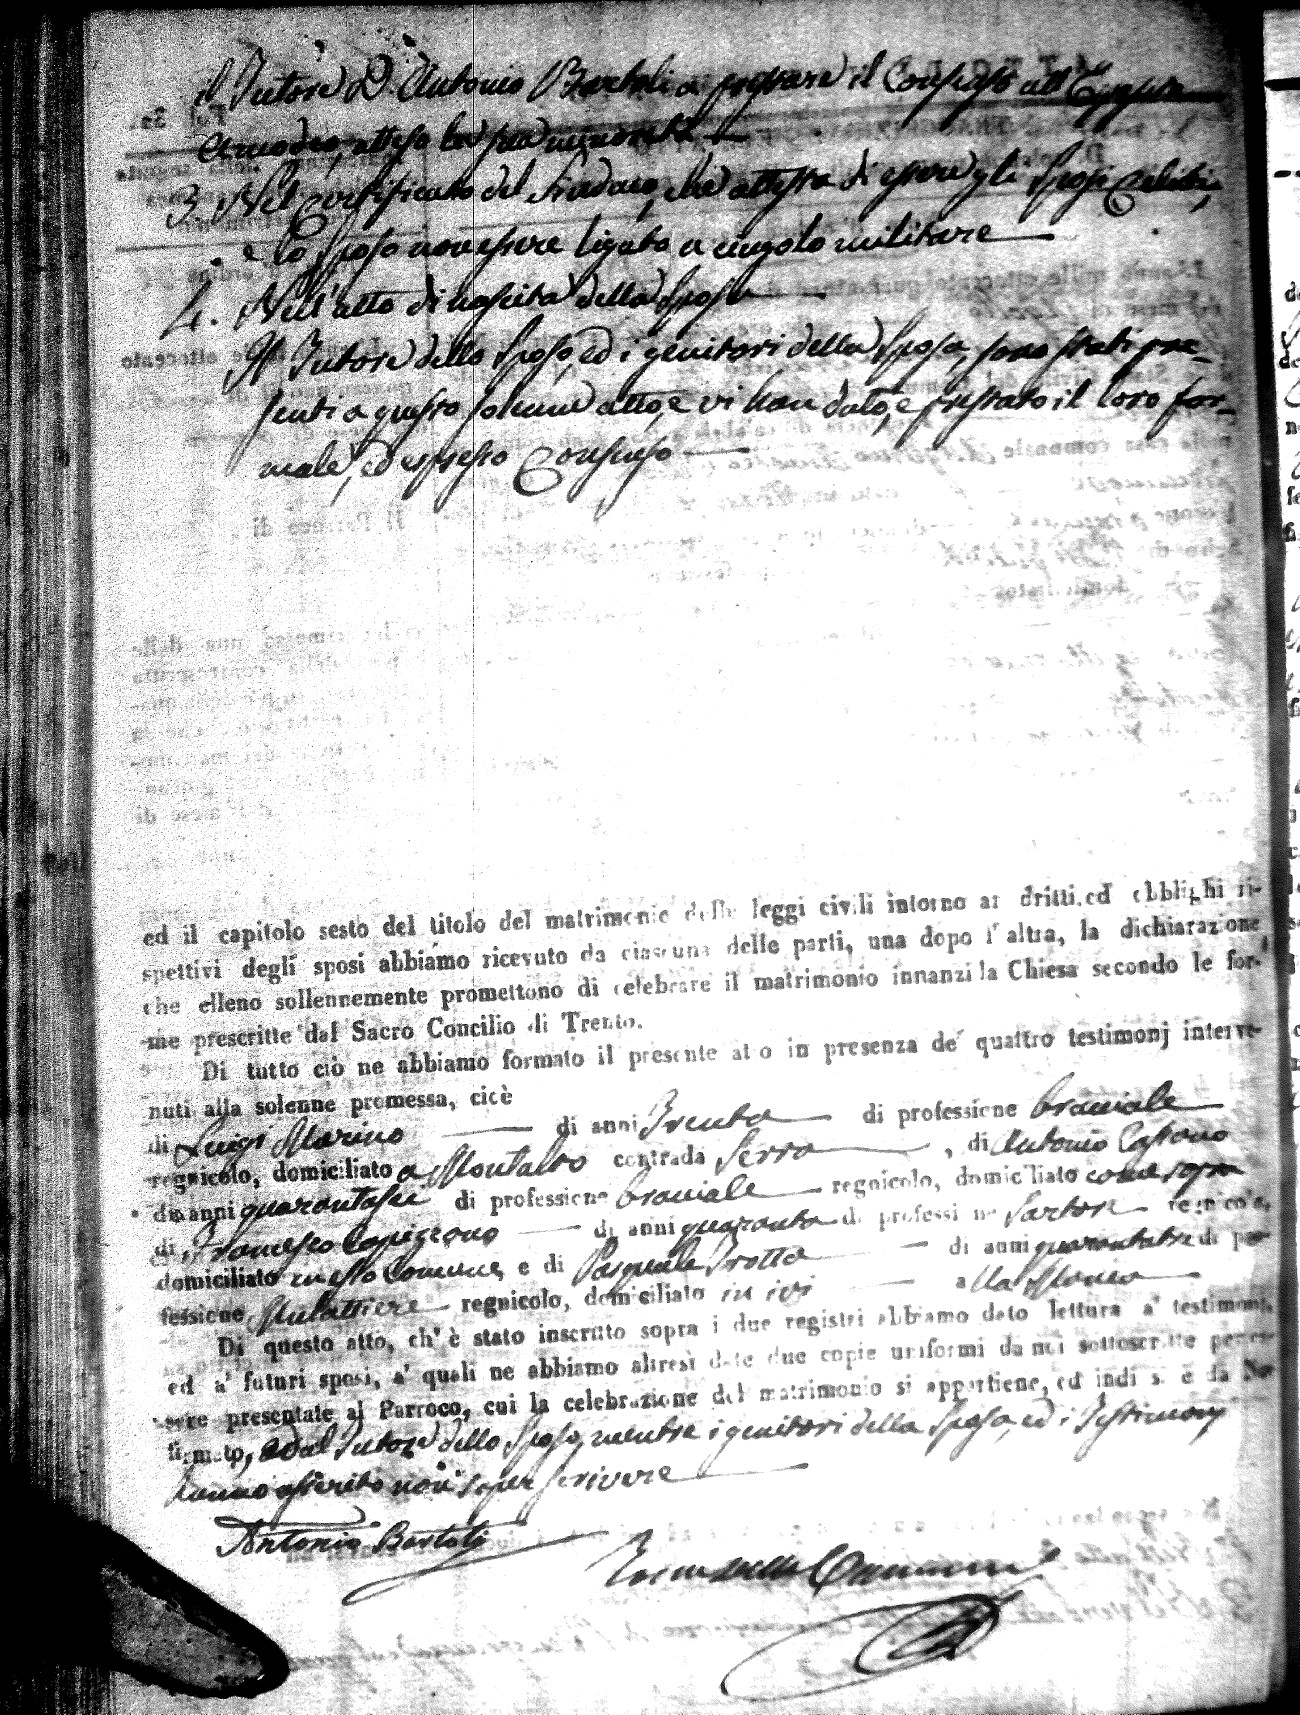 il Tutore D. Antonio Bartoli a prestare il Consenso all'
Amodeo, atteso la sua minorità
3. Nel Certificato del Sindaco, che attesta di essere gli Sposi Celibi,
e lo Sposo non essere ligato a cingolo militare
4. Nell'atto di nascita della Sposa
Il Tutore dello Sposo, ed i genitori della Sposa, sono stati pre-
senti a questo solenne atto, e vi han dato, e prestato il loro for-
male, ed espresso Consenso
ed il capitolo sesto del titolo del matrimonio delle leggi civili intorno ai dritti ed obblighi ri-
spettivi degli sposi abbiamo ricevuto da ciascuna delle parti, una dopo l'altra, la dichiarazione,
che elleno sollennemente promettono di celebrare il matrimonio innanzi la Chiesa secondo le for-
me prescritte dal Sacro Concilio di Trento.
Di tutto ciò ne abbiamo formato il presente atto in presenza de' quattro testimonj interve-
nuti alla solenne promessa, cioè
di Luigi Marino di anni Trenta di professione braciale
regnicolo, domiciliato a Montalto contrada Serra, di Antonio Cassano
di anni quarantasei di professione braciale regnicolo, domiciliato come sopra
di Francesco di anni quaranta di professione Sartore regnicolo,
domiciliato in esso Comune, e di Pasquale Trotta di anni quarantatre di pro-
fessione Mulattiere regnicolo, domiciliato in ivi
Di questo atto, ch'è stato inscritto sopra i due registri abbiamo dato lettura a' testimonj,
ed a' futuri sposi, a' quali ne abbiamo altresì date due copie uniformi da noi sottoscritte per es-
sere presentate al Parroco, cui la celebrazione del matrimonio si appartiene, ed indi si è da Noi
firmato, e dal Tutore dello Sposo, mentre i genitori della Sposa, ed i Testimonj
hanno asserito non saper scrivere
Antonio Bartoli